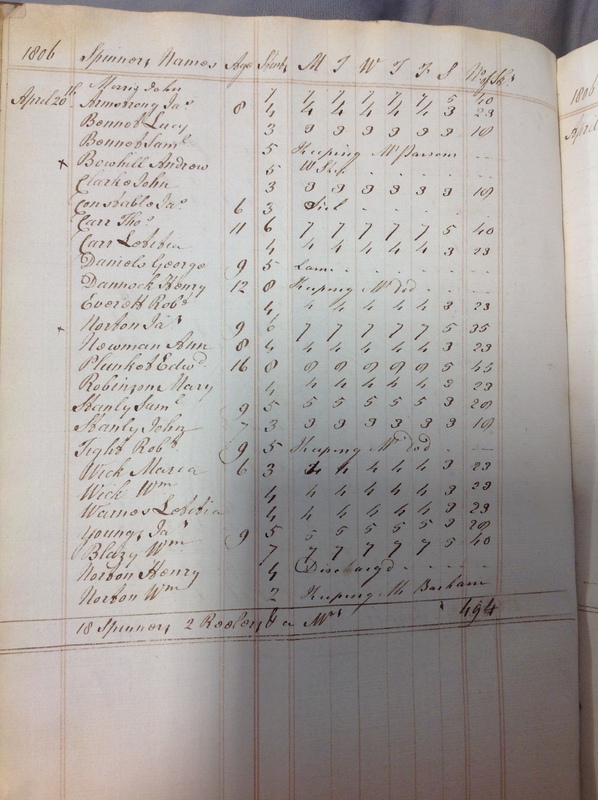 1806 Spinners Names Age Stint M T W T F S No of Sks
April 20th Marig John 7 7 7 7 7 7 5 40
Armstrong Jas 8 4 4 4 4 4 4 3 23
Bennet Lucy 3 3 3 3 3 3 3 18
Bennet Saml 5 Keeping Mr Parsons
x Bowhill Andrew 5
Clarke John 3 3 3 3 3 3 3 18
Constable Jas 6 3 Sick
Carr Thos 11 6 7 7 7 7 7 5 40
Carr Letitia 4 4 4 4 4 4 3 23
Daniels George 9 5 Lame
Dannock Henry 12 8 Keeping Mr do
Everett Robt 4 4 4 4 4 4 3 23
x Norton Jas 9 6 7 7 7 7 7 5 35
Newman Ann 8 4 4 4 4 4 4 3 23
Plunket Edwd 16 8 8 8 8 8 8 5 45
Robinson Mary 4 4 4 4 4 4 3 23
Stanly Saml 9 5 5 5 5 5 5 3 28
Stanly John 7 3 3 3 3 3 3 3 18
Tight Robt 9 5 Keeping Mr do
Wick Maria 6 3 4 4 4 4 4 3 23
Wick Wm 4 4 4 4 4 4 3 23
Warnes Letitia 4 4 4 4 4 4 3 23
Youngs Jas 9 5 5 5 5 5 5 3 28
Blazy Wm 7 7 7 7 7 7 5 40
Norton Henry 4 Dischargd
Norton Wm 2 Keeping Mr Barham
18 Spinners 2 Reelers & a Mrs 494
1806
April